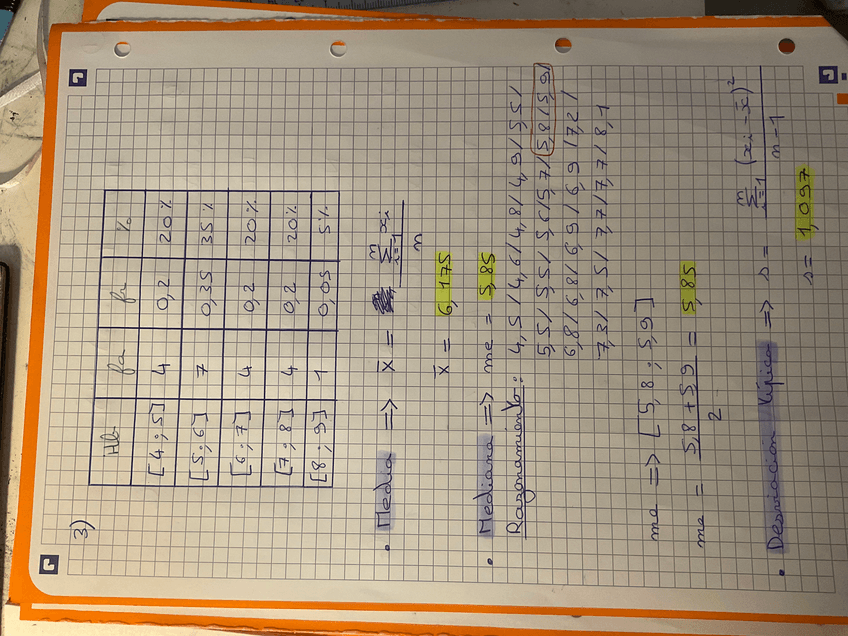 3)
Hb fa fr %
[4;5] 4 0,2 20%
[5;6] 7 0,35 35%
[6;7] 4 0,2 20%
[7;8] 4 0,2 20%
[8;9] 1 0,05 5%
• Media => x̄ = Σⁿᵢ₌₁ xi / n
x̄ = 6,175
• Mediana => me = 5,85
Razonamiento: 4,5/4,6/4,8/4,9/5,5/
5,5/5,5/5,6/5,7/5,8/5,9/
6,8/6,8/6,9/6,9/7,2/
7,3/7,5/7,7/7,7/8,1
me => [5,8 ; 5,9]
me = 5,8+5,9 / 2 = 5,85
• Desviación típica => s = Σⁿᵢ₌₁ (xi-x̄)² / n-1
s = 1,097